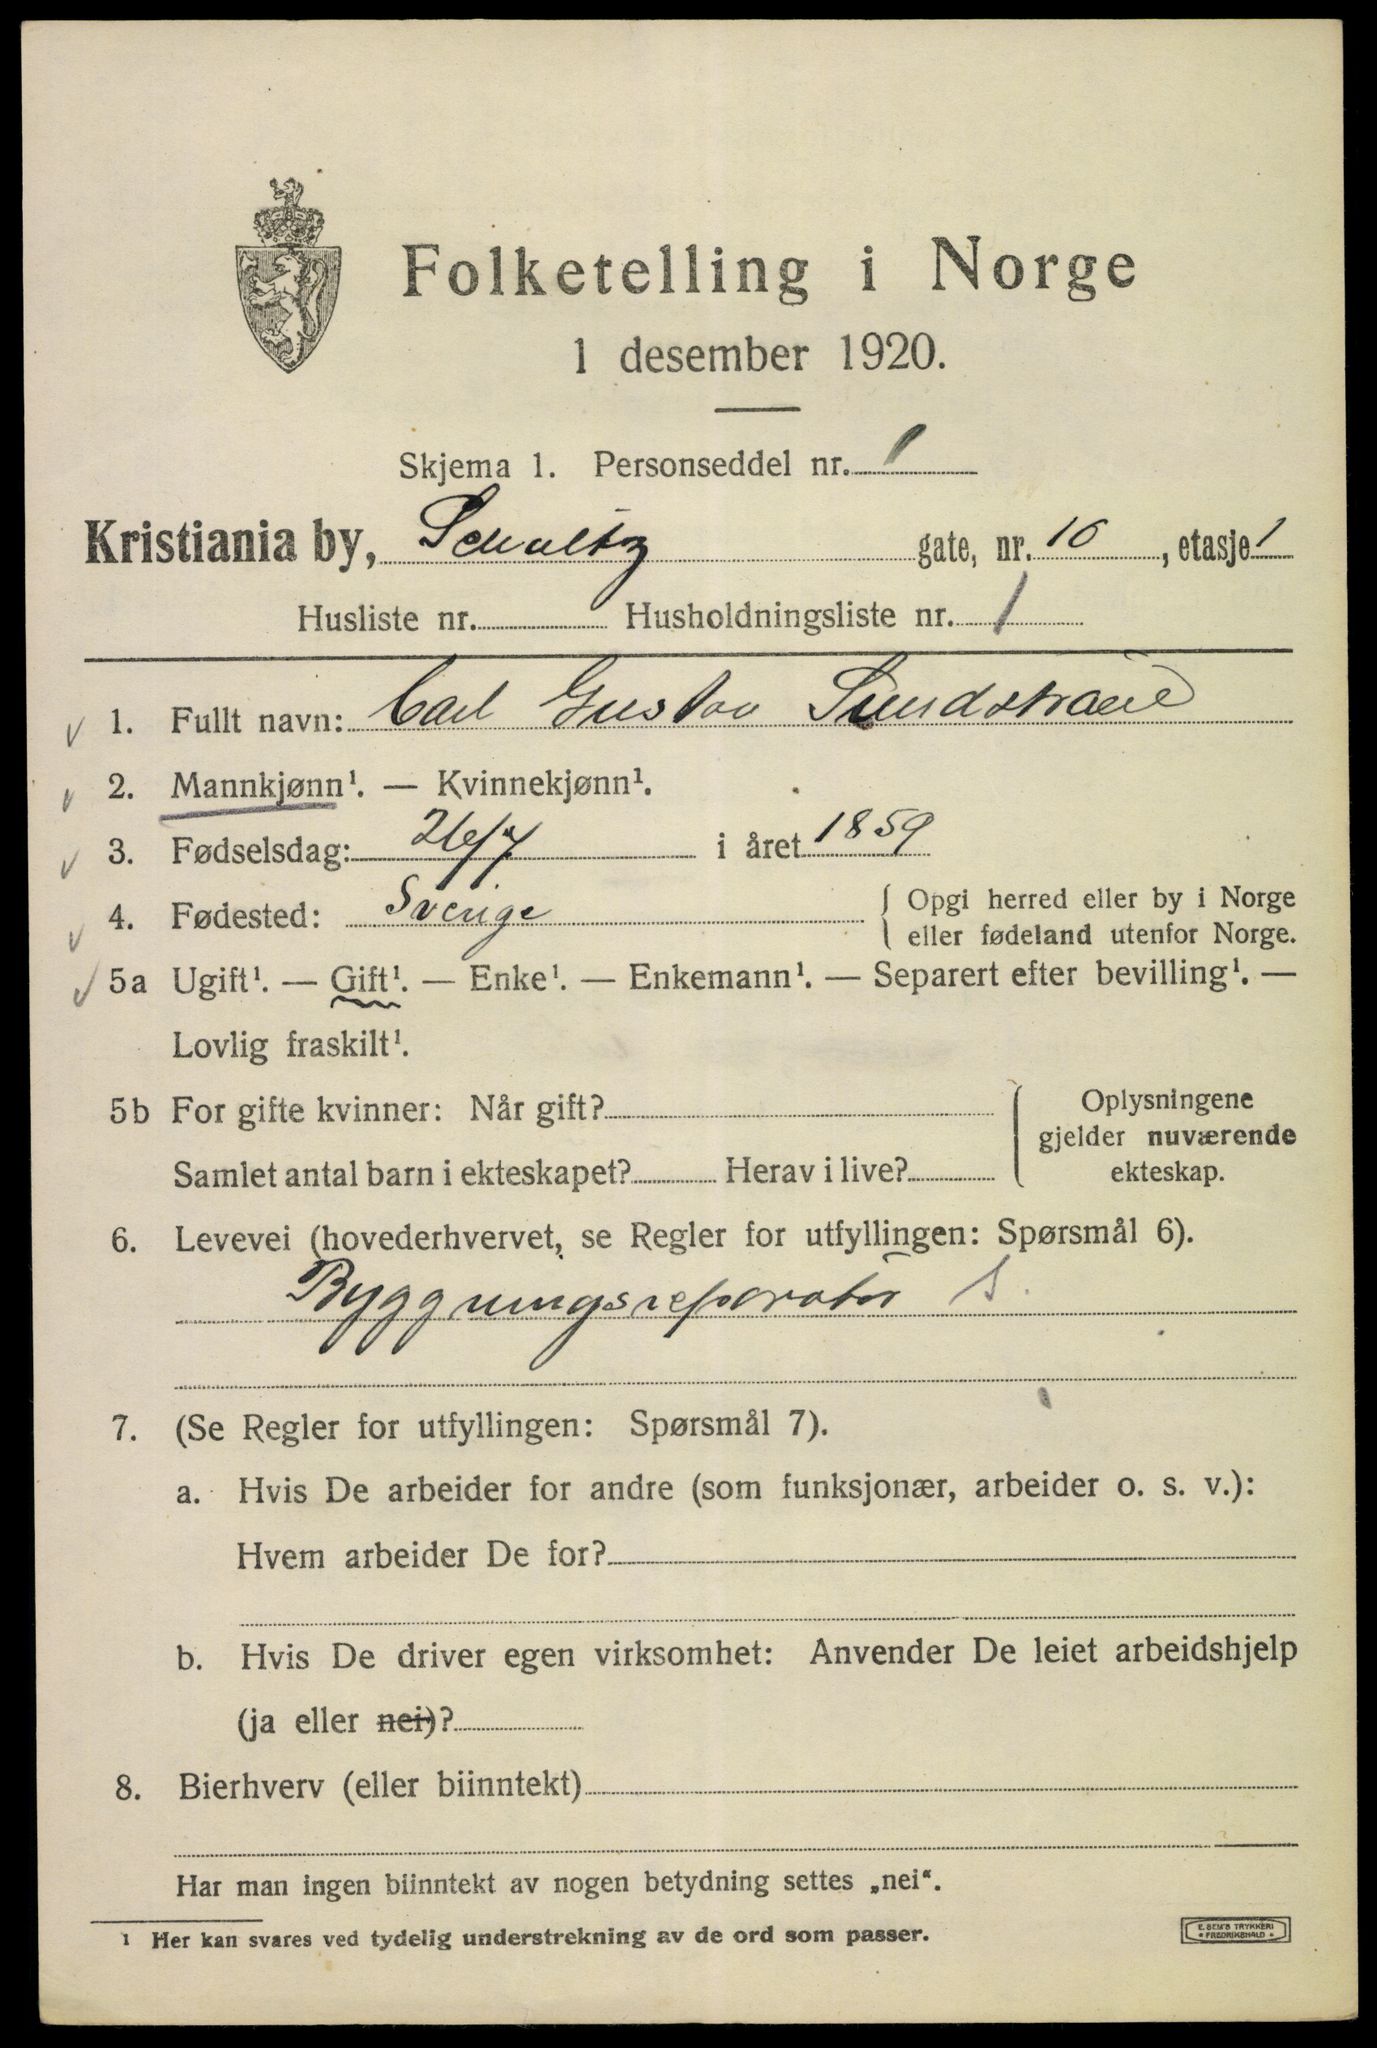 Folketelling i Norge
1 desember 1920.
Skjema 1. Personseddel nr. 1
Kristiania by, Schultz gate, nr. 16, etasje 1
Husliste nr. Husholdningsliste nr. 1
1. Fullt navn: Carl Gustav
2. Mannkjønn¹. — Kvinnekjønn¹.
3. Fødselsdag: 26/7 i året 1859
4. Fødested: Sverige { Opgi herred eller by i Norge
eller fødeland utenfor Norge.
5a Ugift¹. — Gift¹. — Enke¹. — Enkemann¹. — Separert efter bevilling¹. —
Lovlig fraskilt¹.
5b For gifte kvinner: Når gift? { Oplysningene
gjelder nuværende
Samlet antal barn i ekteskapet? Herav i live? ekteskap.
6. Levevei (hovederhvervet, se Regler for utfyllingen: Spørsmål 6).
Byggningsreparatør S.
7. (Se Regler for utfyllingen: Spørsmål 7).
a. Hvis De arbeider for andre (som funksjonær, arbeider o. s. v.):
Hvem arbeider De for?
b. Hvis De driver egen virksomhet: Anvender De leiet arbeidshjelp
(ja eller nei)?
8. Bierhverv (eller biinntekt)
Har man ingen biinntekt av nogen betydning settes „nei“.
¹ Her kan svares ved tydelig understrekning av de ord som passer.
E. SEM'S TRYKKERI
* FREDRIKSHALD *